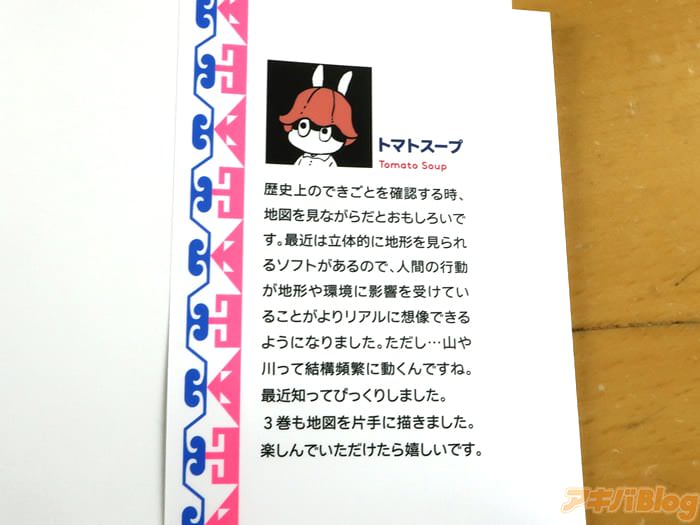 トマトスープ
Tomato Soup
歴史上のできごとを確認する時、
地図を見ながらだとおもしろいで
す。最近は立体的に地形を見られ
るソフトがあるので、人間の行動
が地形や環境に影響を受けてい
ることがよりリアルに想像できる
ようになりました。ただし…山や
川って結構頻繁に動くんですね。
最近知ってびっくりしました。
3巻も地図を片手に描きました。
楽しんでいただけたら嬉しいです。
アキバBlog